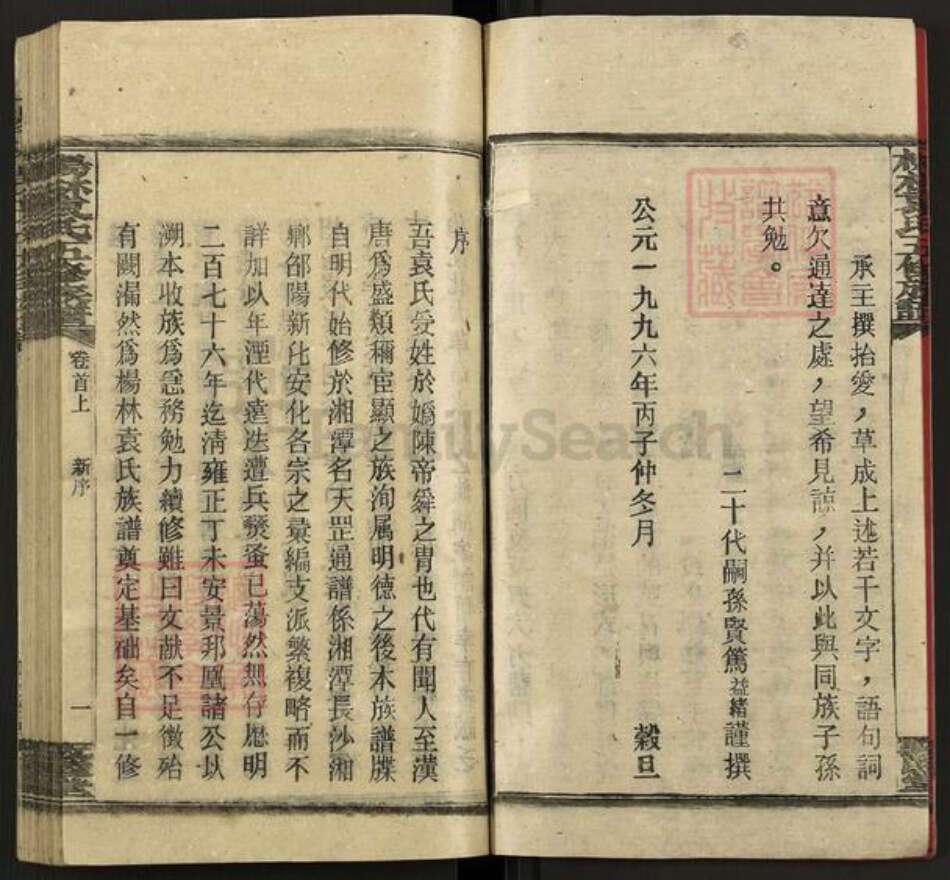 楊林袁氏五修族譜
承主撰抬愛，草成上述若干文字，語句詞
意欠通達之處，望希見諒，并以此與同族子孫
共勉。
二十代嗣孫賢篤益緒謹撰
公元一九九六年丙子仲冬月　穀旦
序
吾袁氏受姓於媯陳帝舜之胄也代有聞人至漢
唐爲盛類稱宦顯之族洵属明德之後本族譜牒
自明代始修於湘潭名天罡通譜係湘潭長沙湘
鄉邵陽新化安化各宗之彙編支派繁複略而不
詳加以年湮代遠迭遭兵燹蚤已蕩然無存歷明
二百七十六年迄清雍正丁未安景邦凰諸公以
溯本收族爲急務勉力續修雖曰文献不足徴殆
有闕漏然爲楊林袁氏族譜奠定基础矣自一修
楊林袁氏五修族譜
卷首上
新序
一
FamilySearch